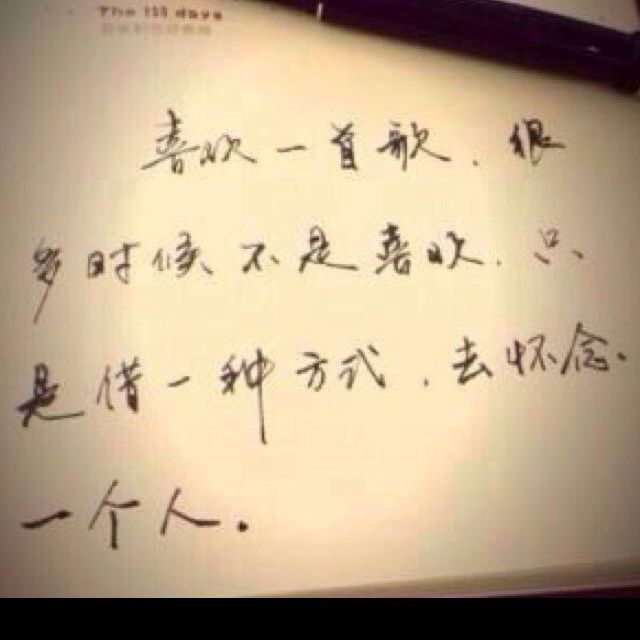 The 153 days
喜欢一首歌，很
多时候不是喜欢，只
是借一种方式，去怀念
一个人。